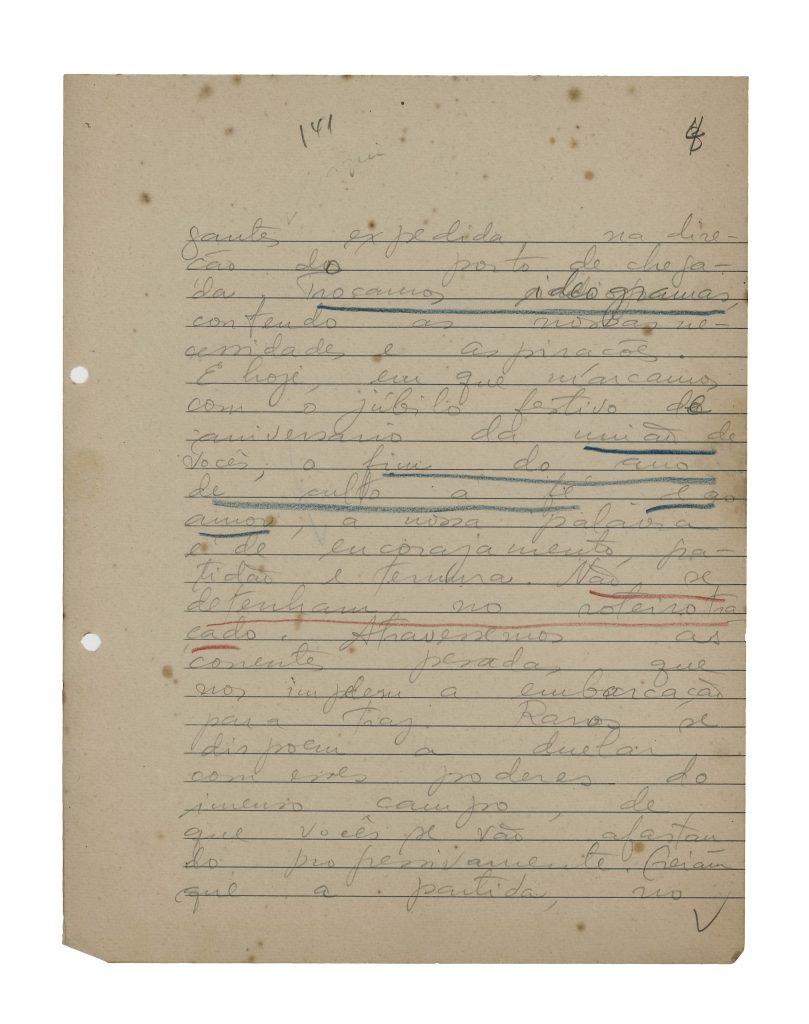 141
gantes expedida na dire-
ção do porto de chega-
da. Troçamos ideogramas,
contendo as nossas ne-
cessidades e aspirações.
E hoje, em que marcamos
com o júbilo festivo de
aniversario da união de
vocês, o fim do ano
de culto a fé e ao
amor, a nossa palavra
é de encorajamento, ga-
tidão e ternura. Não se
detenham no roteiro tra
çado. Atravessemos as
correntes pesadas que
nos impdem a embarcação
para traz. Raros se
dispoem a duelar
com esses poderes do
imenso campo, de
que vocês se vão afastan
do progressivamente. Creiam
que a partida, no